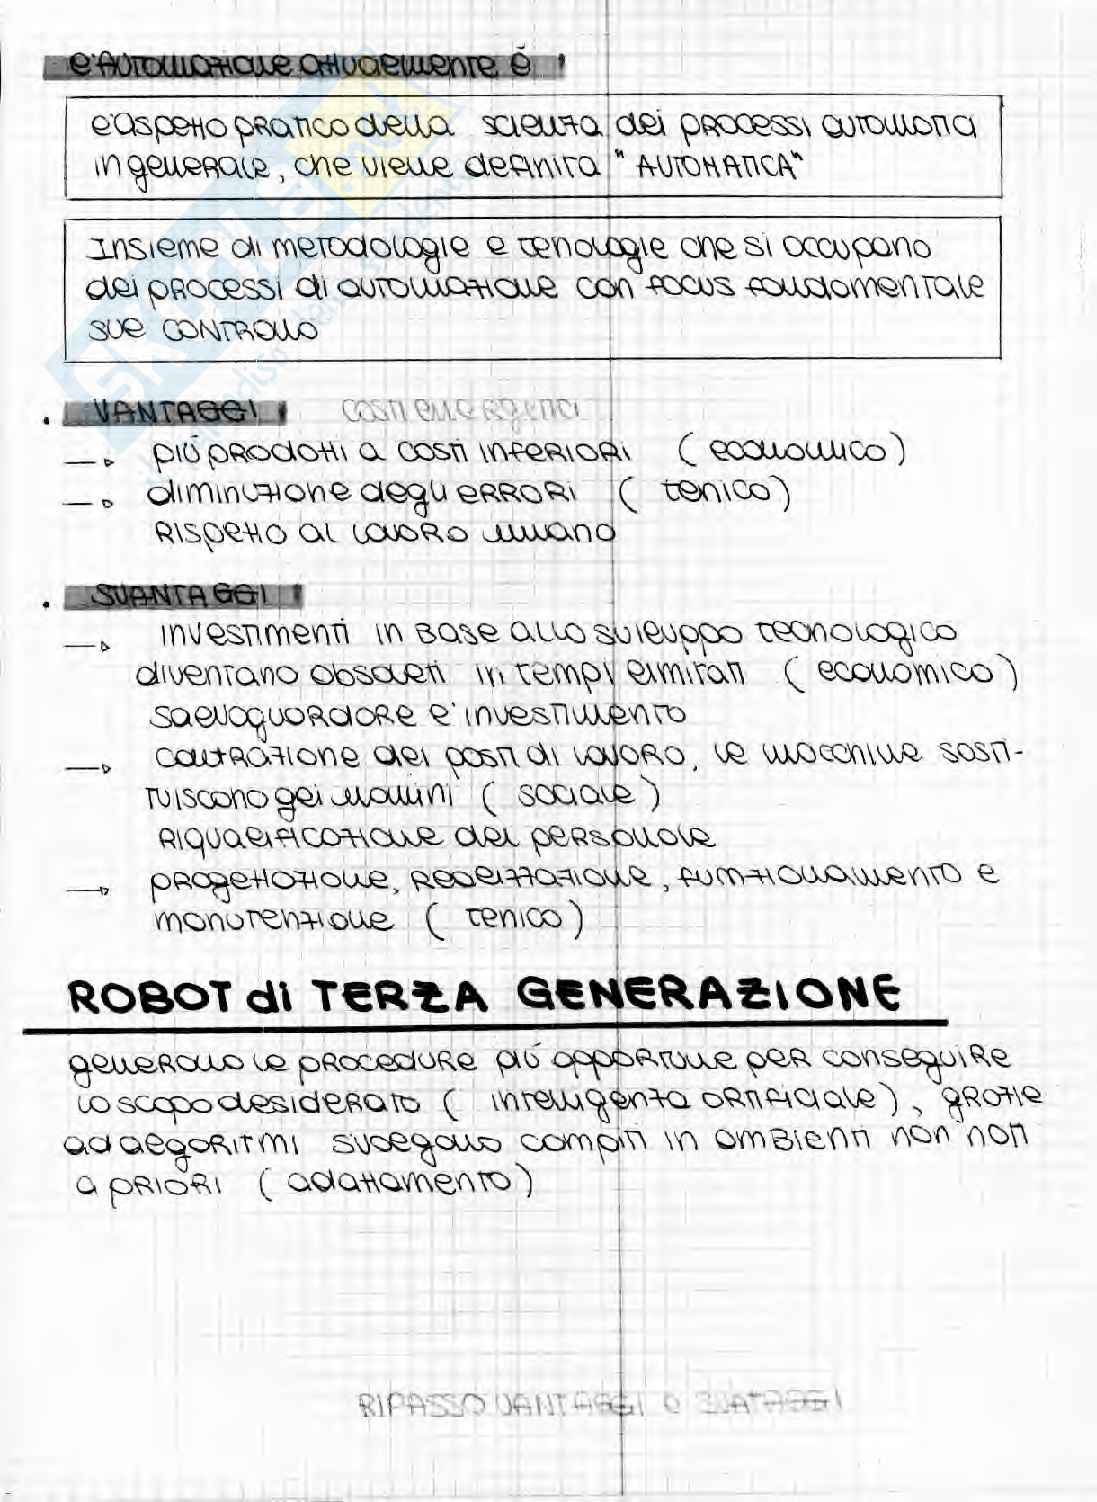 l'AUTOMAZIONE attualmente è
l'aspetto pratico della scienza dei processi automatici
in generale, che viene definita "AUTOMATICA"
Insieme di metodologie e tenologie che si occupano
dei processi di automazione con focus fondamentale
sul CONTROLLO
. VANTAGGI
più prodotti a costi inferiori (economico)
diminuzione degli errori (tenico)
rispetto al lavoro umano
. SVANTAGGI
investimenti in base allo sviluppo tecnologico
diventano obsoleti in tempi limitati (economico)
salvaguardare l'investimento
contrazione dei posti di lavoro, le macchine sosti-
tuiscono gli uomini (sociale)
riqualificazione del personale
progettazione, realizzazione, funzionamento e
manutenzione (tenico)
ROBOT di TERZA GENERAZIONE
generano le procedure più opportune per conseguire
lo scopo desiderato (intelligenza artificiale), grazie
ad algoritmi svolgano compiti in ambienti non noti
a priori (adattamento)
RIPASSO VANTAGGI e SVATAGGI